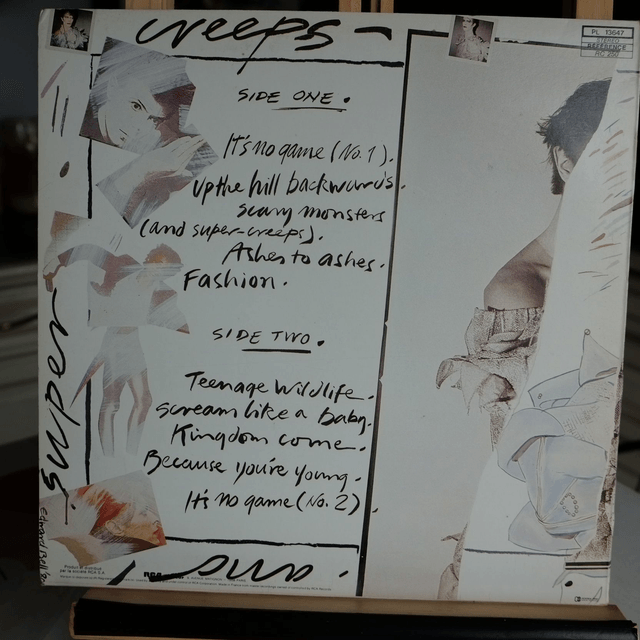 creeps
PL 13647
STEREO
SIDE ONE.
It's no game (No. 1).
Up the hill backwards.
scary monsters
(and super-creeps).
Ashes to ashes.
Fashion.
SIDE TWO.
Teenage Wildlife.
Scream like a baby.
Kingdom come.
Because you're young.
It's no game (No. 2)
super
RCA